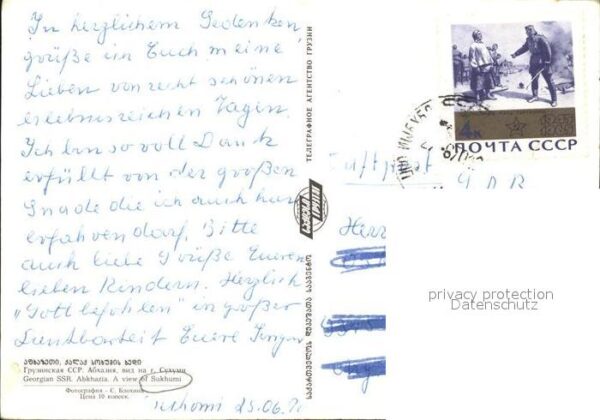 In herzlichem Gedenken,
grüße ich Euch meine
Lieben von recht schönen
erlebnisreichen Tagen.
Ich bin so voll Dank
erfüllt von der großen
Gnade die ich auch hier
erfahren darf. Bitte
auch liebe Grüße Eueren
lieben Kindern. Herzlich
„Gott befohlen" in großer
Dankbarkeit Euere
აფხაზეთი, ქალაქ სოხუმის ხედი
Грузинская ССР. Абхазия, вид на г. Сухуми
Georgian SSR. Abkhazia. A view of Sukhumi
Фотография - С.
Цена 10 копеек.
25.06.
ТЕЛЕГРАФНОЕ АГЕНТСТВО ГРУЗИИ
საქართველოს დეპეშათა სააგენტო
4к
ПОЧТА СССР
Luftpost
GDR
privacy protection
Datenschutz